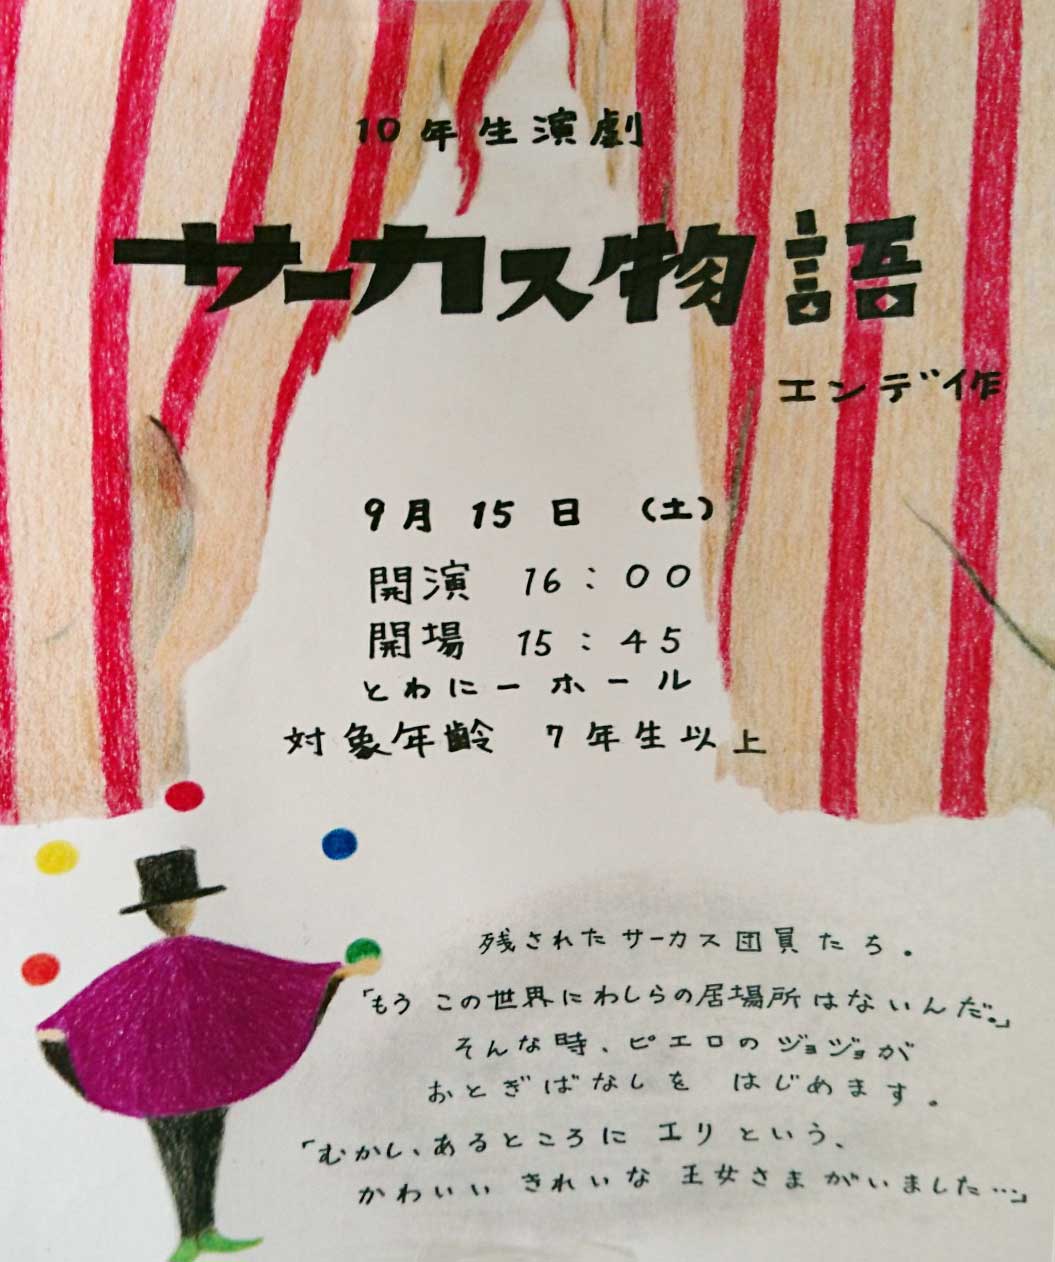 10年生演劇
サーカス物語
エンデ作
9月15日（土）
開演 16：00
開場 15：45
とわにーホール
対象年齢 7年生以上
残されたサーカス団員たち。
「もう この世界にわしらの居場所はないんだ。」
そんな時、ピエロのジョジョが
おとぎばなしを はじめます。
「むかし、あるところに エリという、
かわいい きれいな 王女さまがいました…」